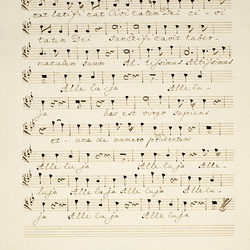 cat latifi cat Civitatem Dei ci vi
tatem Dei Sanctificavit taber
naculum suum Al tissimus Altissimus
Alle lu ja Alle lu
ja haec est virgo sapiens
et una de numero prudentum
Alle lu ja Alle lu ja Alle
lu ja Alle lu ja Alle lu
ja Alle lu ja Alle lu ja